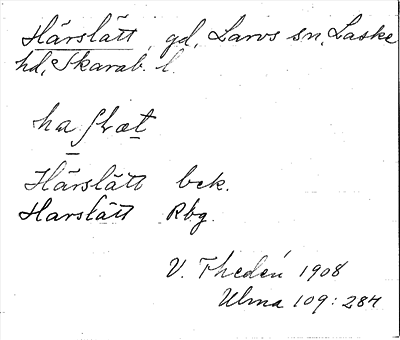 Härslätt, gd, Larvs sn, Laske
hd, Skarab. l.
Härslätt bek.
Harslätt Rbg.
V. Thedén 1908
Ulma 109: 284